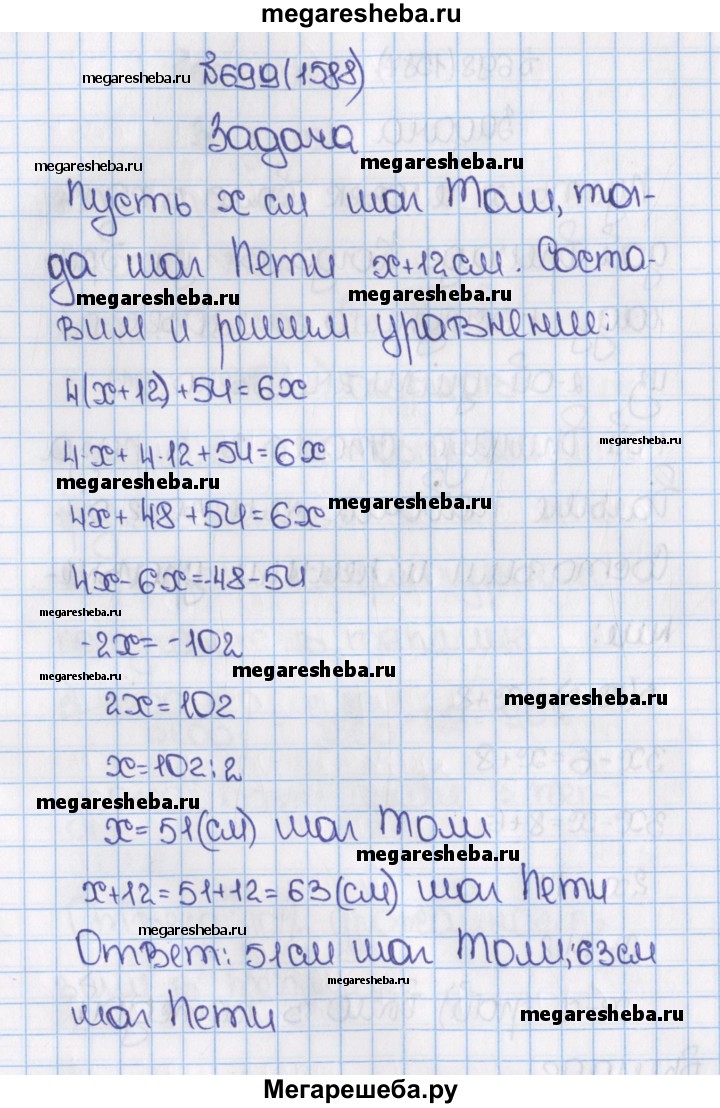 megaresheba.ru
№699(1588)
megaresheba.ru
Задача
megaresheba.ru
megaresheba.ru
Пусть x см шаг Толи, тог-
да шаг Пети x+12 см. Соста-
megaresheba.ru
megaresheba.ru
вим и решим уравнение:
4(x+12)+54=6x
megaresheba.ru
4·x+4·12+54=6x
megaresheba.ru
megaresheba.ru
4x+48+54=6x
4x-6x=-48-54
megaresheba.ru
-2x=-102
megaresheba.ru
megaresheba.ru
megaresheba.ru
2x=102
x=102:2
megaresheba.ru
x=51(см) шаг Толи
megaresheba.ru
x+12=51+12=63(см) шаг Пети
megaresheba.ru
Ответ: 51см шаг Толи; 63см
megaresheba.ru
шаг Пети
megaresheba.ru
Мегарешеба.ру